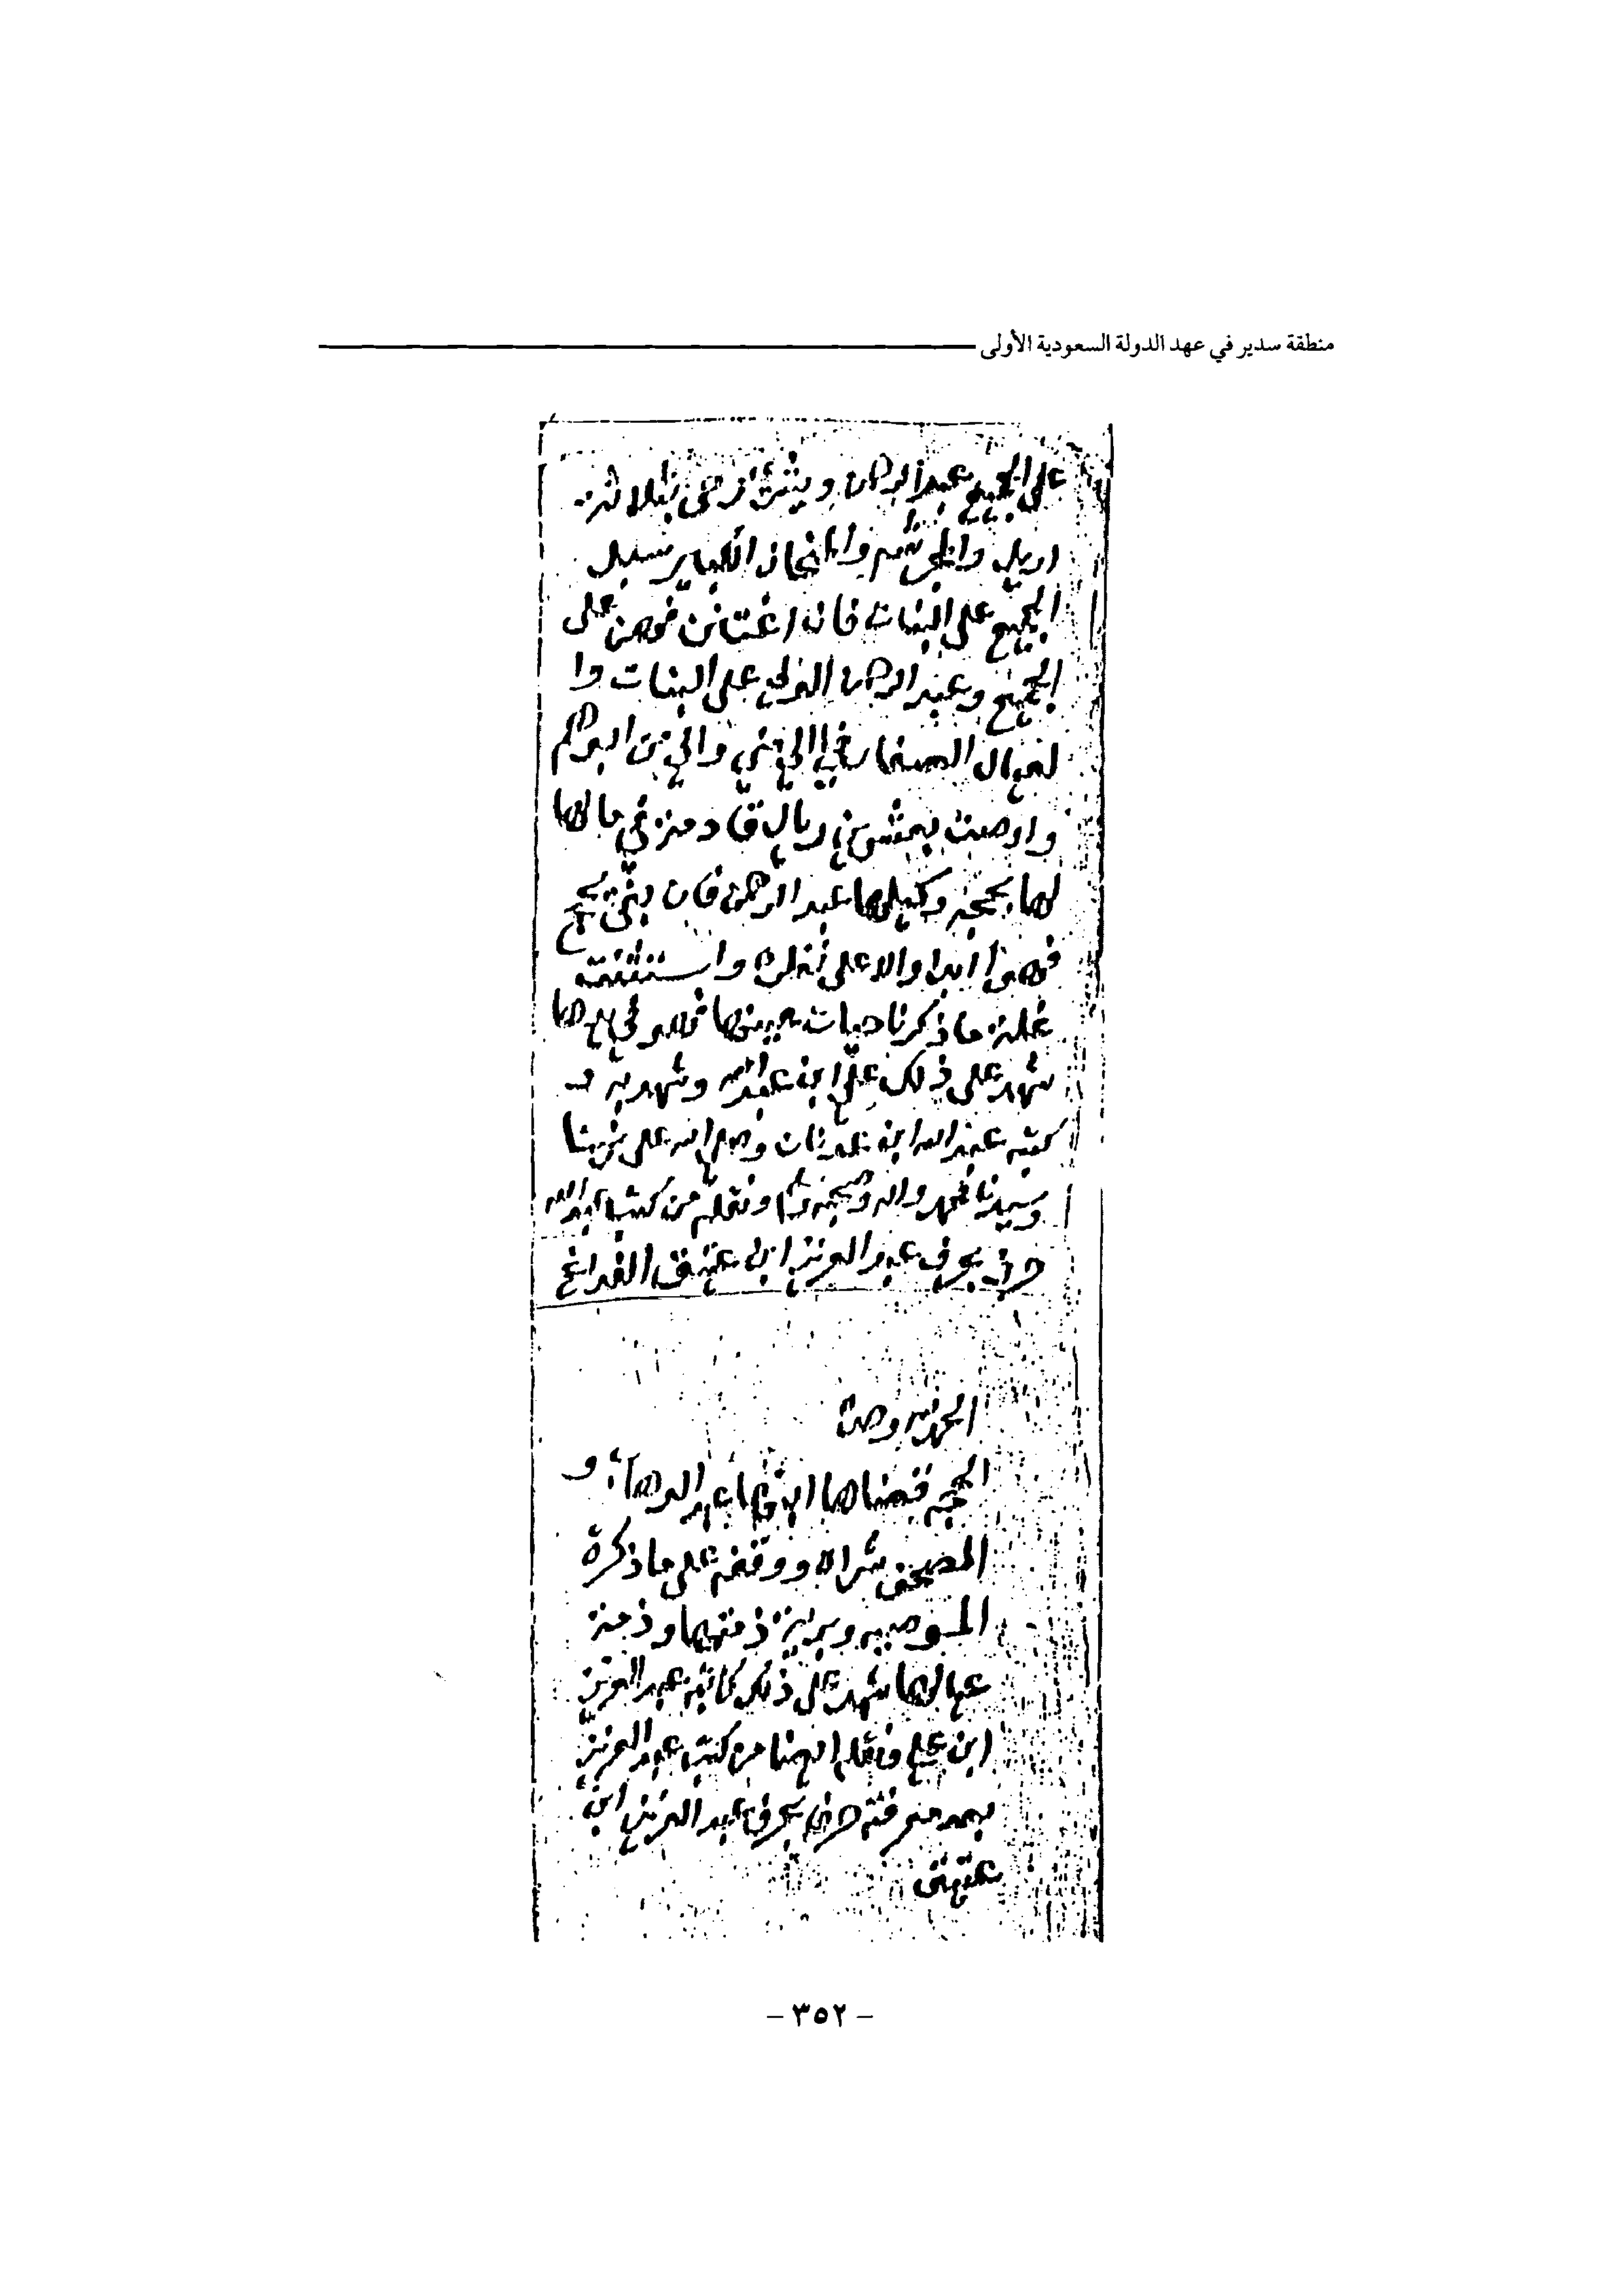 منطقة سدير في عهد الدولة السعودية الأولى
على الجميع عبد الرحمن ويشترا رحى بثلاثة
اريل والمنحاز الكبير سبيل
الجميع على البنات فان اغتنن فهن على
الجميع وعبد الرحمن الولي على البنات وا
لعيال الصغار
واوصت بعشرين ريال قادمة في مالها
لها بحجة وكيلها عبد الرحمن فان بغى يحج
فهو ابدا والا على نظره واستثنت
غلة ما ذكرنا حيات عينها
شهد على ذلك علي ابن عبدالله وشهد به
كتبه عبد الله ابن عدنان وصلى الله على نبينا
وسيدنا محمد واله وصحبه وسلم ونقله من كتب عبدالله
حرف بحرف عبد العزيز ابن عتيق
الحمد لله وحده
الحجة قضاها عبد الوهاب و
المصحف شراه ووقفه على ما ذكرة
الموصيه وبرية ذمتها وذمة
عيالها شهد على ذلك كاتبه عبد العزيز
ابن علي ونقله ايضا من كتب عبد العزيز
بعد معرفته حرف بحرف عبد العزيز ابن
عتيق
– ٣٥٢ –